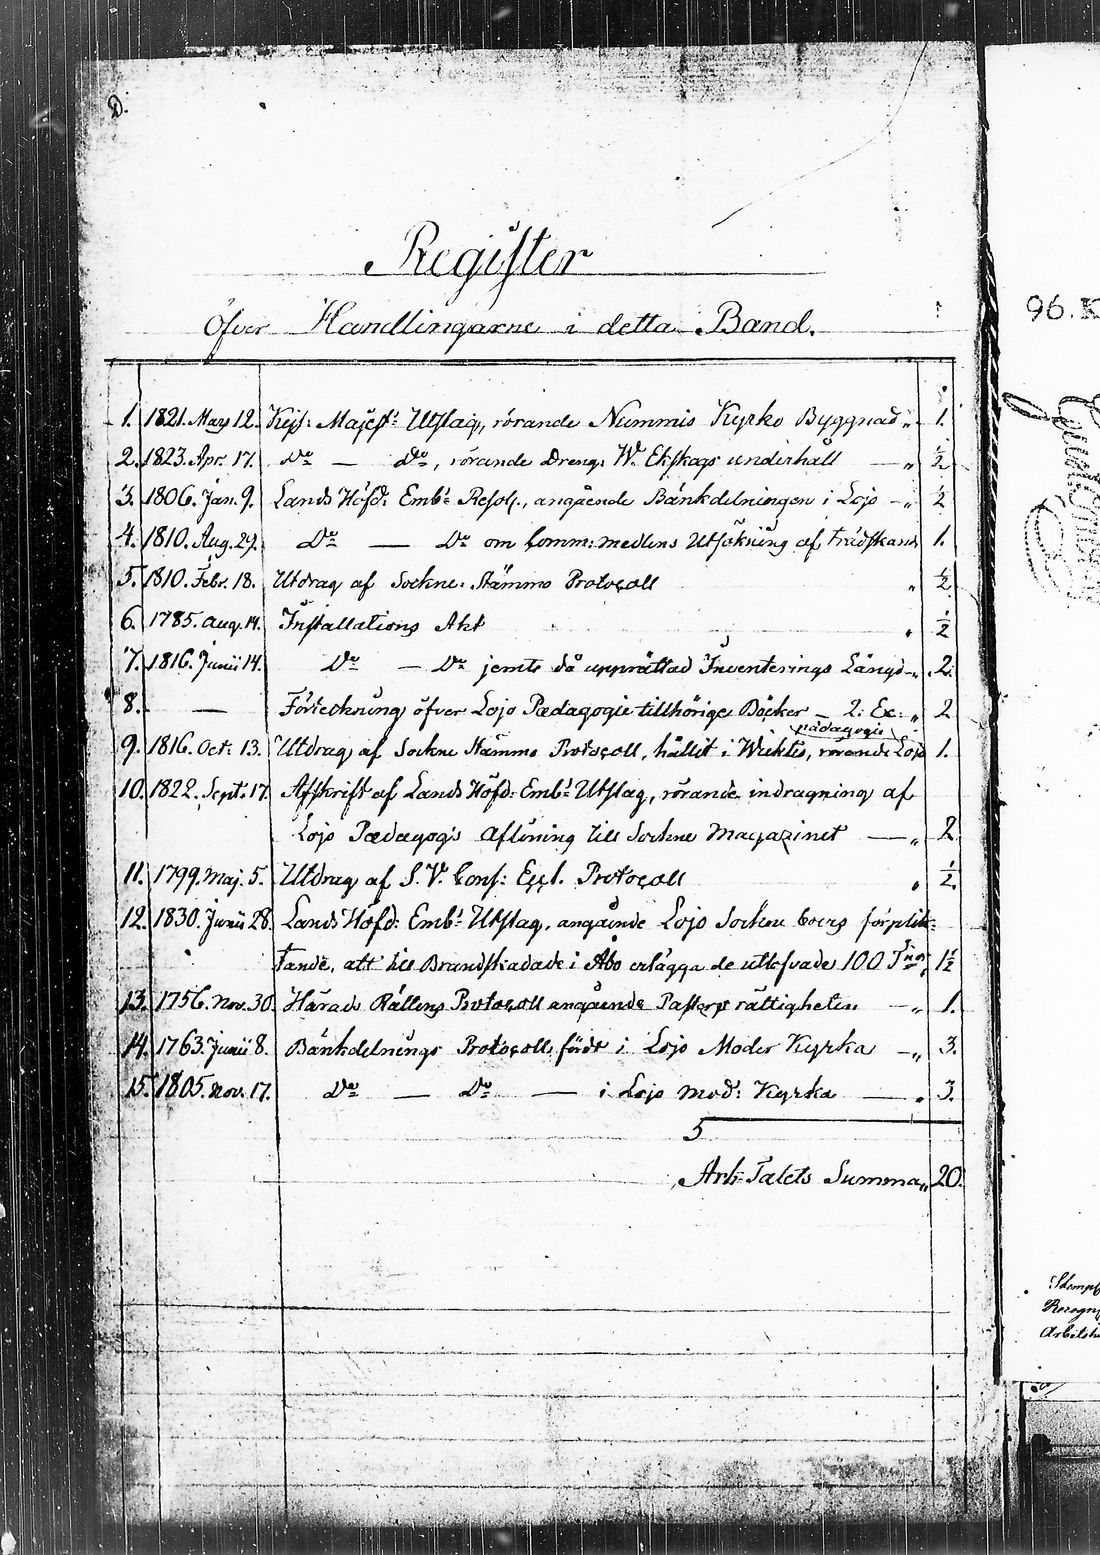 D.
Register
Öfver Handlingarne i detta Band.
1. 1821. Maj 12. Kejs: Majest:s Utslag, rörande Nummis Kyrko Byggnad „ 1.
2. 1823. Apr. 17. Do — Do, rörande Dreng. W. Ekskogs underhåll — „ ½
3. 1806. Jan. 9. Lands Höfd: Emb:s Resol., angående Bänkdelningen i Lojo — „ ½
4. 1810. Aug. 27. Do — Do om Comm: medlens Utsökning af 1.
5. 1810. Febr. 18. Utdrag af Sockne Stämmo Protocoll „ ½
6. 1785. Aug. 14. Installations Akt „ ½
7. 1816. Junii 14. Do — Do jemte då upprättad Inventerings Längd „ 2.
8. — Förteckning öfver Lojo Pædagogie tillhörige Böcker — 2: Ex: „ 2
pädagogie
9. 1816. Oct: 13. Utdrag af Sockne Stämmo Protocoll, hållit i Wichtis, rörande Lojo 1.
10. 1822. Sept: 17. Afskrift af Lands Höfd: Emb:s Utslag, rörande indragning af
Lojo Pædagogs aflöning till Sockne Magazinet — „ 2
11. 1799. Maj. 5. Utdrag af S. V. Cons: Eccl. Protocoll „ ½.
12. 1830. Junii 28. Lands Höfd: Emb:s Utslag, angående Lojo Sockne boers förplik-
tande, att till Brandskadade i Åbo erlägga de utlofvade 100 T:nor „ 1½
13. 1756. Nov. 30. Härads Rättens Protocoll angående Pastors rättigheter — „ 1.
14. 1763. Junii 8. Bänkdelnings Protocoll, fördt i Lojo Moder Kyrka — „ 3.
15. 1805. Nov. 17. Do — Do — i Lojo mod: Kyrka — „ 3.
5
Ark-Talets Summa „ 20.
96. K